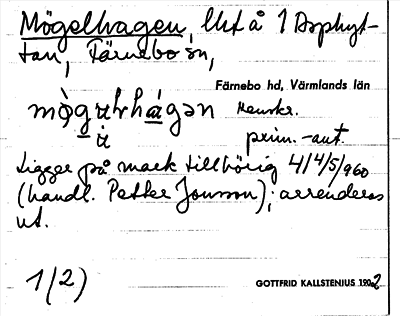 Mögelhagen, lht å 1 Asphyt-
tan, Färnebo sn,
Färnebo hd, Värmlands län
prim. -aut.
Ligger på mark tillhörig 4/4/5/960
(handl. Petter Jonsson); arrenderas
ut.
1(2)
GOTTFRID KALLSTENIUS 1902